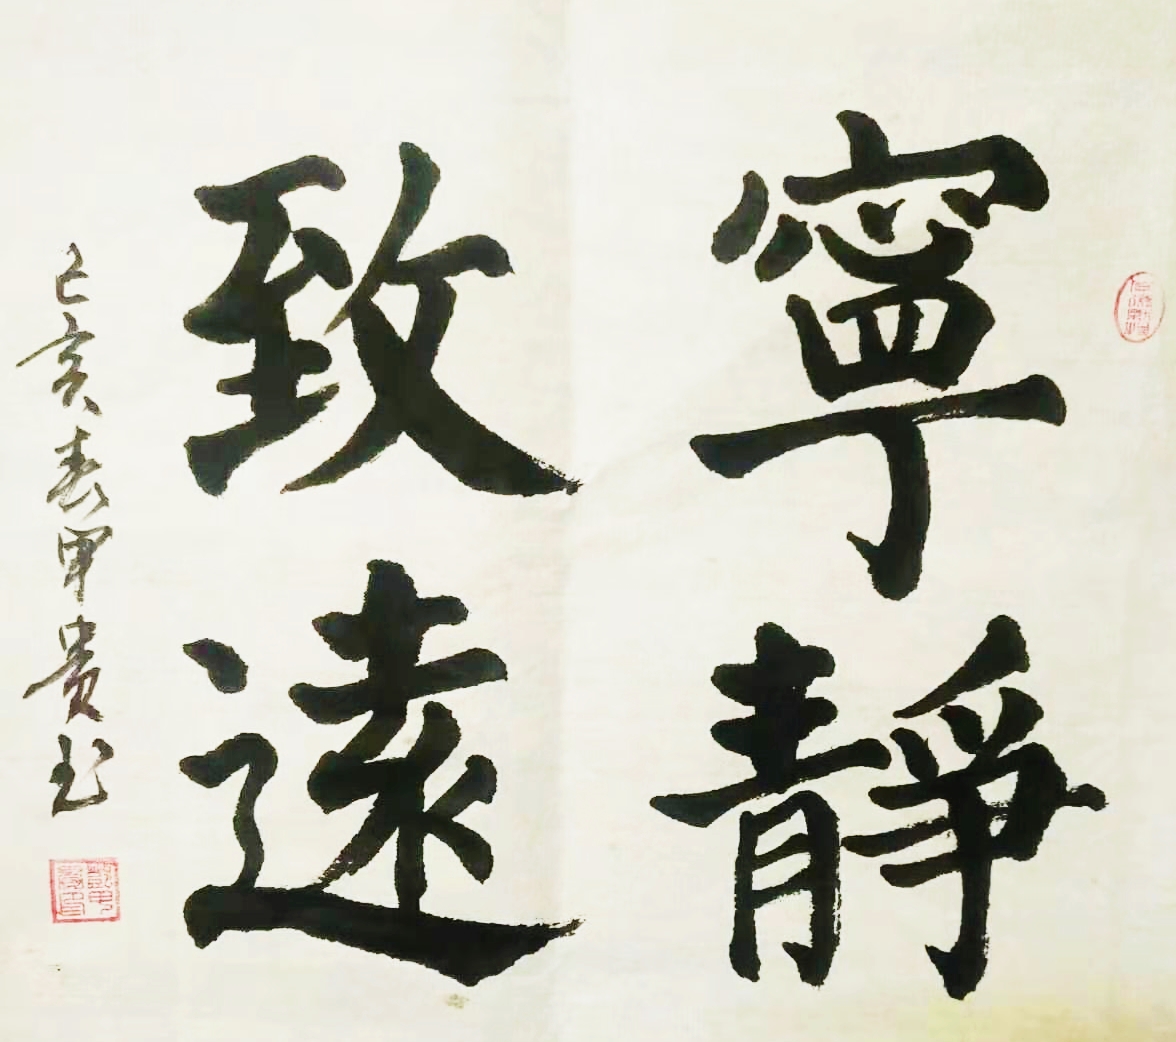 寧靜
致遠
己亥春甲貴书